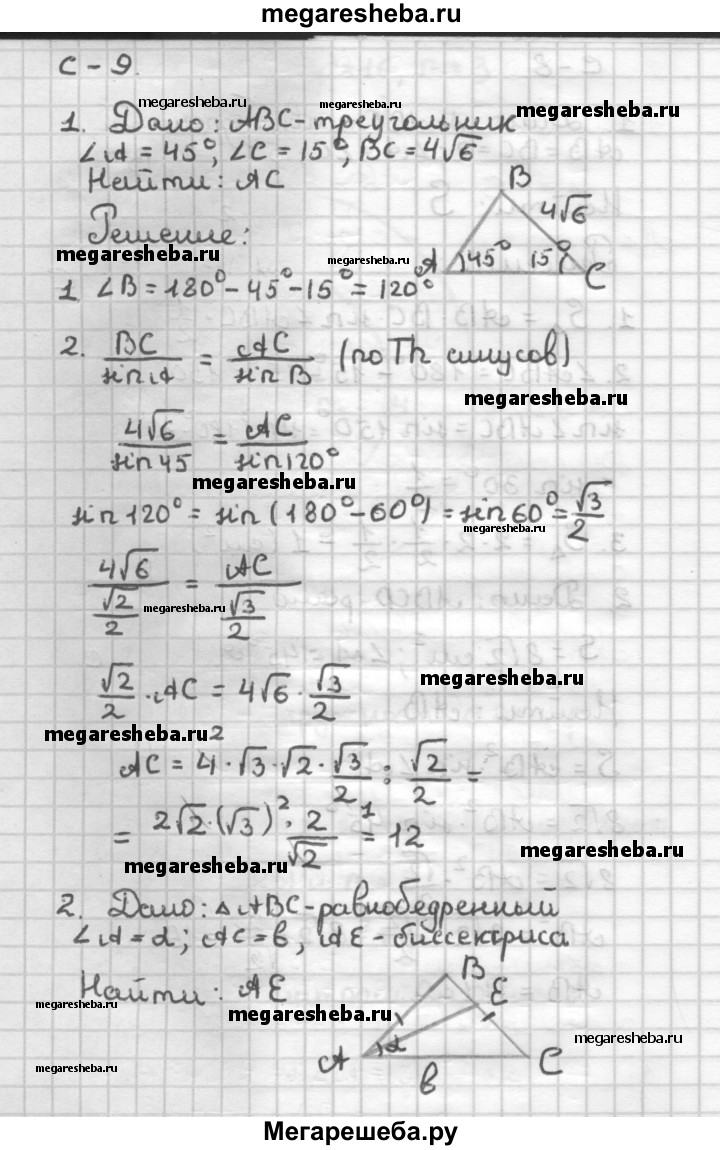 megaresheba.ru
С-9.
megaresheba.ru megaresheba.ru megaresheba.ru
1. Дано: ABC-треугольник
∠A = 45°, ∠C = 15°, BC = 4√6
Найти: AC
B
4√6
Решение:
megaresheba.ru megaresheba.ru
A 45° 15° C
1. ∠B = 180° - 45° - 15° = 120°
2. BC/sin A = AC/sin B (по Th синусов)
megaresheba.ru
4√6/sin 45 = AC/sin 120°
megaresheba.ru
sin 120° = sin (180° - 60°) = sin 60° = √3/2
megaresheba.ru
4√6/(√2/2) = AC/(√3/2)
megaresheba.ru megaresheba.ru
√2/2 · AC = 4√6 · √3/2
megaresheba.ru
megaresheba.ru
2
AC = 4 · √3 · √2 · √3/2 : √2/2 =
= 2√2 · (√3)² · 2/√2 = 12
1
megaresheba.ru megaresheba.ru
2. Дано: △ABC-равнобедренный
∠A = α; AC = b, AE - биссектриса
Найти: AE
B
E
megaresheba.ru megaresheba.ru
megaresheba.ru
A α C
b
megaresheba.ru
Мегарешеба.ру